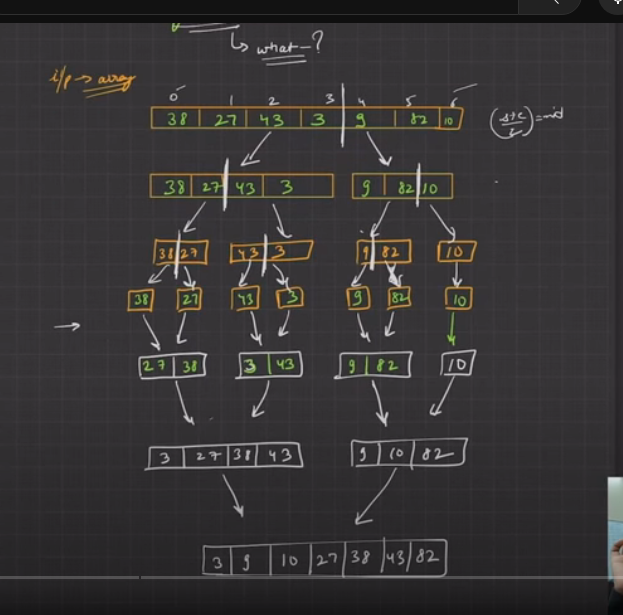 what-?
i/p → array
0 1 2 3 4 5 6
38 27 43 3 9 82 10
(s+e/2) = mid
38 27 43 3 9 82 10
38 27 43 3 9 82 10
38 27 43 3 9 82 10
27 38 3 43 9 82 10
3 27 38 43 9 10 82
3 9 10 27 38 43 82